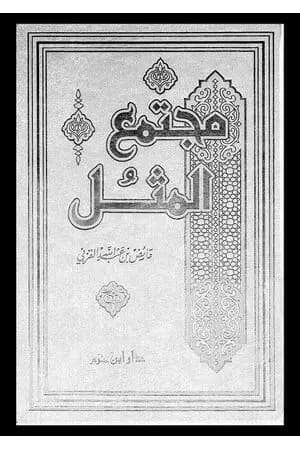 مجتمع
المثل
عائض بن عبد الله القرني
دار ابن حزم